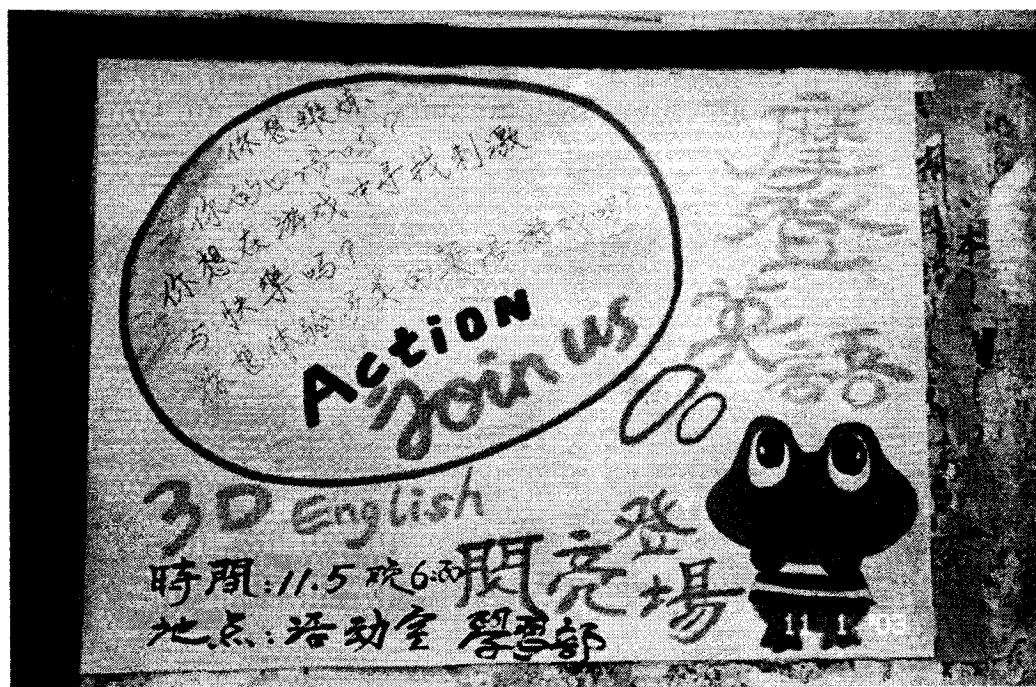 你想锻炼
你的口语吗?
你想在游戏中寻找刺激
与快樂吗?
想体验
Action
Join us
英語
3D English
閃亮登場
時間:11.5 晚6:00
地点:活动室 學習部
11 1 '03